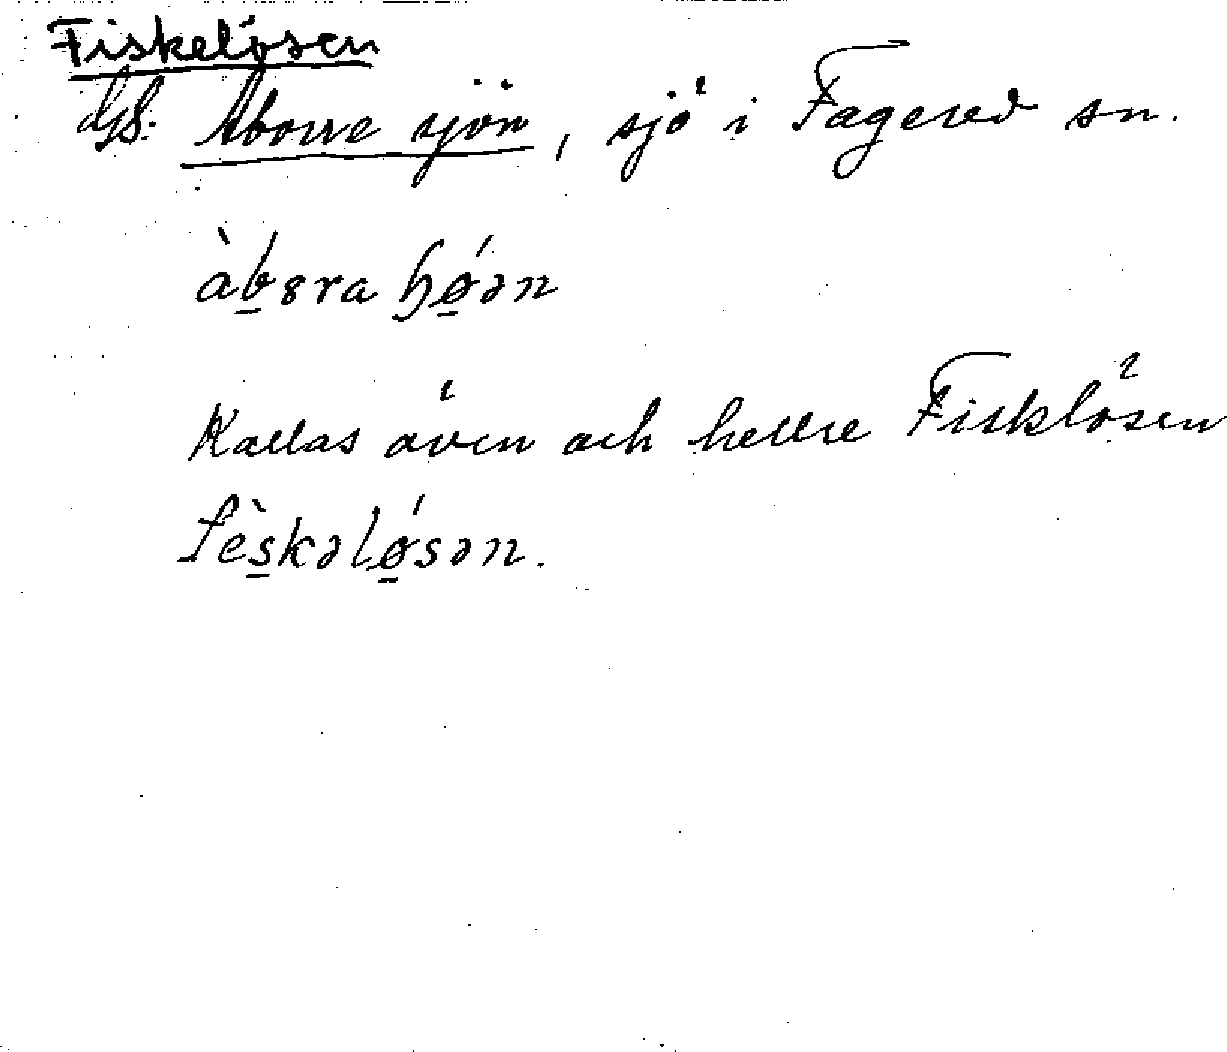 Fiskelösen
GS: Aborre sjön, sjö i Fagered sn.
àb̲ɞra ɧǿ̲ən
Kallas även och hellre Fisklösen
fès̲kəlǿ̲sən.